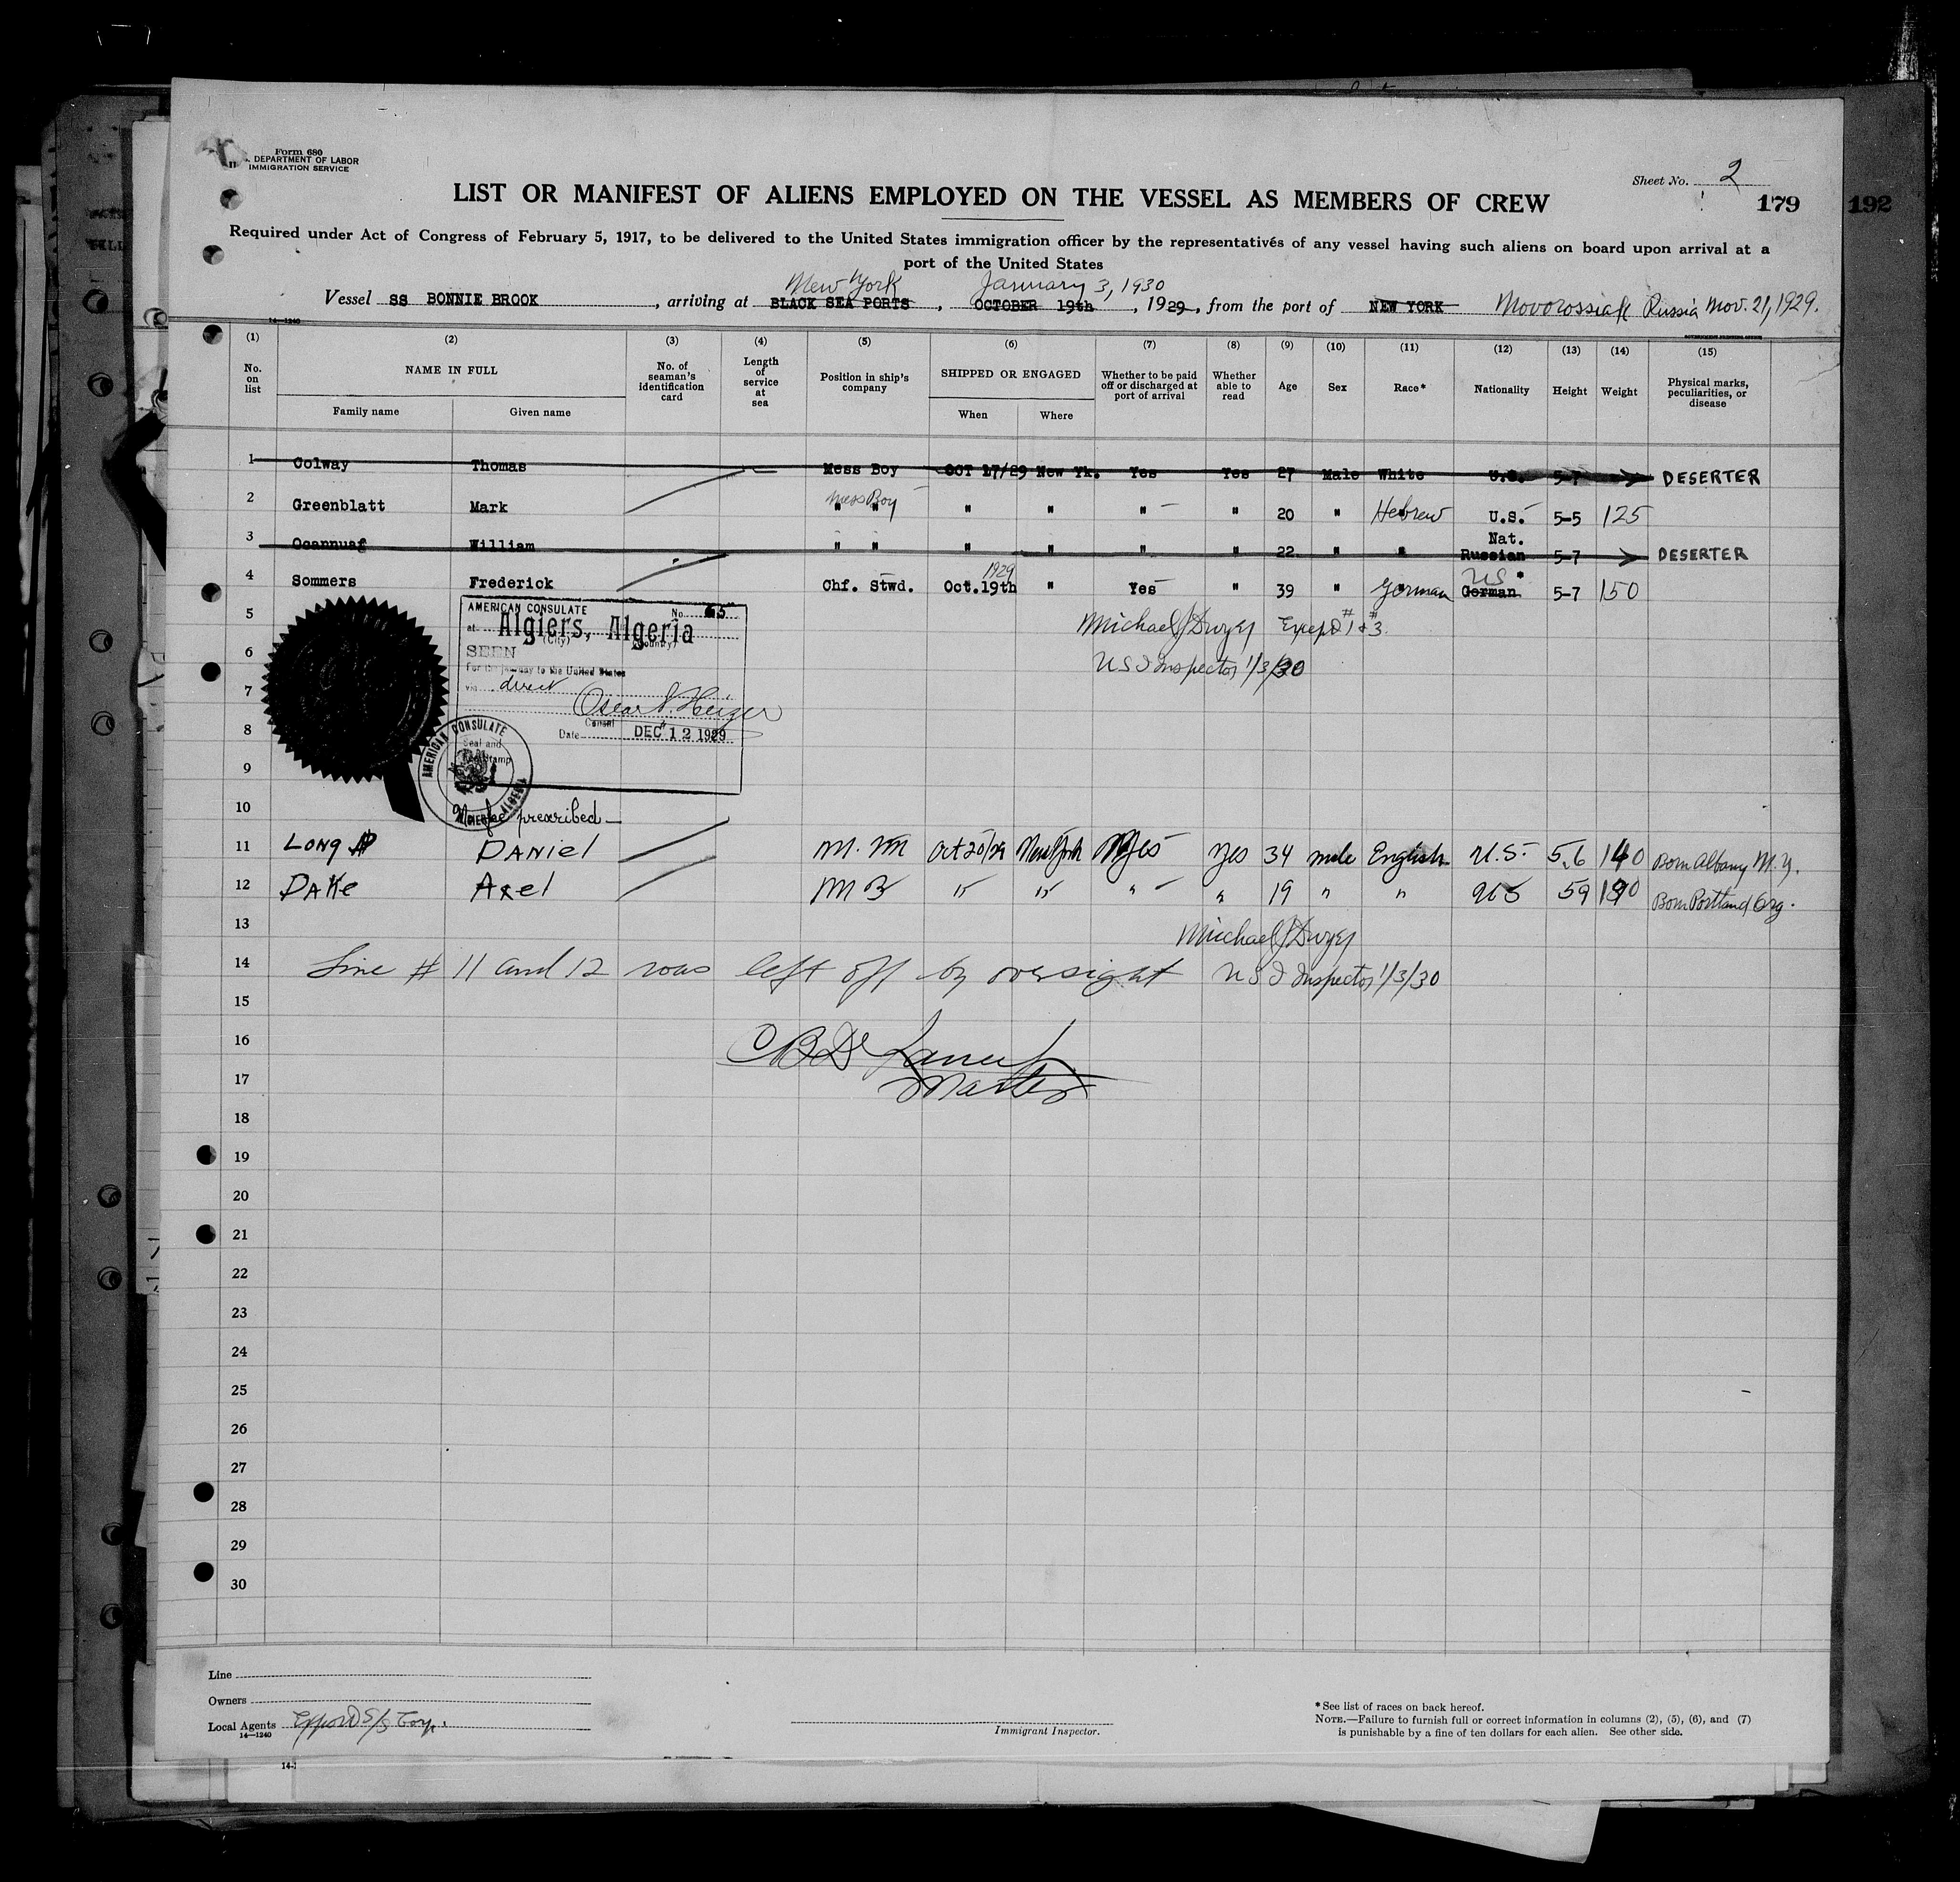 Form 680
DEPARTMENT OF LABOR
IMMIGRATION SERVICE
Sheet No. 2
LIST OR MANIFEST OF ALIENS EMPLOYED ON THE VESSEL AS MEMBERS OF CREW
179
192
Required under Act of Congress of February 5, 1917, to be delivered to the United States immigration officer by the representatives of any vessel having such aliens on board upon arrival at a
port of the United States
New York January 3, 1930
Vessel SS BONNIE BROOK, arriving at BLACK SEA PORTS, OCTOBER 19th, 1929, from the port of NEW YORK Russia Nov. 21, 1929.
14—1240
(1) (2) (3) (4) (5) (6) (7) (8) (9) (10) (11) (12) (13) (14) (15)
No. on list NAME IN FULL No. of seaman's identification card Length of service at sea Position in ship's company SHIPPED OR ENGAGED Whether to be paid off or discharged at port of arrival Whether able to read Age Sex Race* Nationality Height Weight Physical marks, peculiarities, or disease
Family name Given name When Where
1 Colway Thomas Mess Boy OCT 17/29 New Yk. Yes Yes 27 Male White U.S. 5-7 DESERTER
Mess Boy
2 Greenblatt Mark " " " " " " 20 " Hebrew U.S. 5-5 125
Nat.
3 Ocannuaf William " " " " " " 22 " " Russian 5-7 DESERTER
1929 US *
4 Sommers Frederick Chf. Stwd. Oct.19th " Yes " 39 " German German 5-7 150
5
6
7
8
9
10
AMERICAN CONSULATE No. 65
at Algiers, Algeria
(City) (Country)
SEEN
For the journey to the United States
via direct
Oscar S. Heizer
Consul
Date DEC 12 1929
Seal and
AMERICAN CONSULATE
ALGIERS ALGERIA
No fee prescribed—
Michael J Dwyer Except #1 & #3.
US I Inspector 1/3/30
11 LONG DANiel M. M Oct 20/29 New York Yes Yes 34 male English U.S. 5.6 140 Born Albany N.Y.
12 DAKe Axel M B " " " " 19 " " US 59 190 Born Portland Org.
13 Michael J Dwyer
14 Line # 11 and 12 was left off by oversight US I Inspector 1/3/30
15
16
17 Master
18
19
20
21
22
23
24
25
26
27
28
29
30
Line
Owners
Local Agents Export S/S Corp.
14—1240
Immigrant Inspector.
*See list of races on back hereof.
NOTE.—Failure to furnish full or correct information in columns (2), (5), (6), and (7)
is punishable by a fine of ten dollars for each alien. See other side.